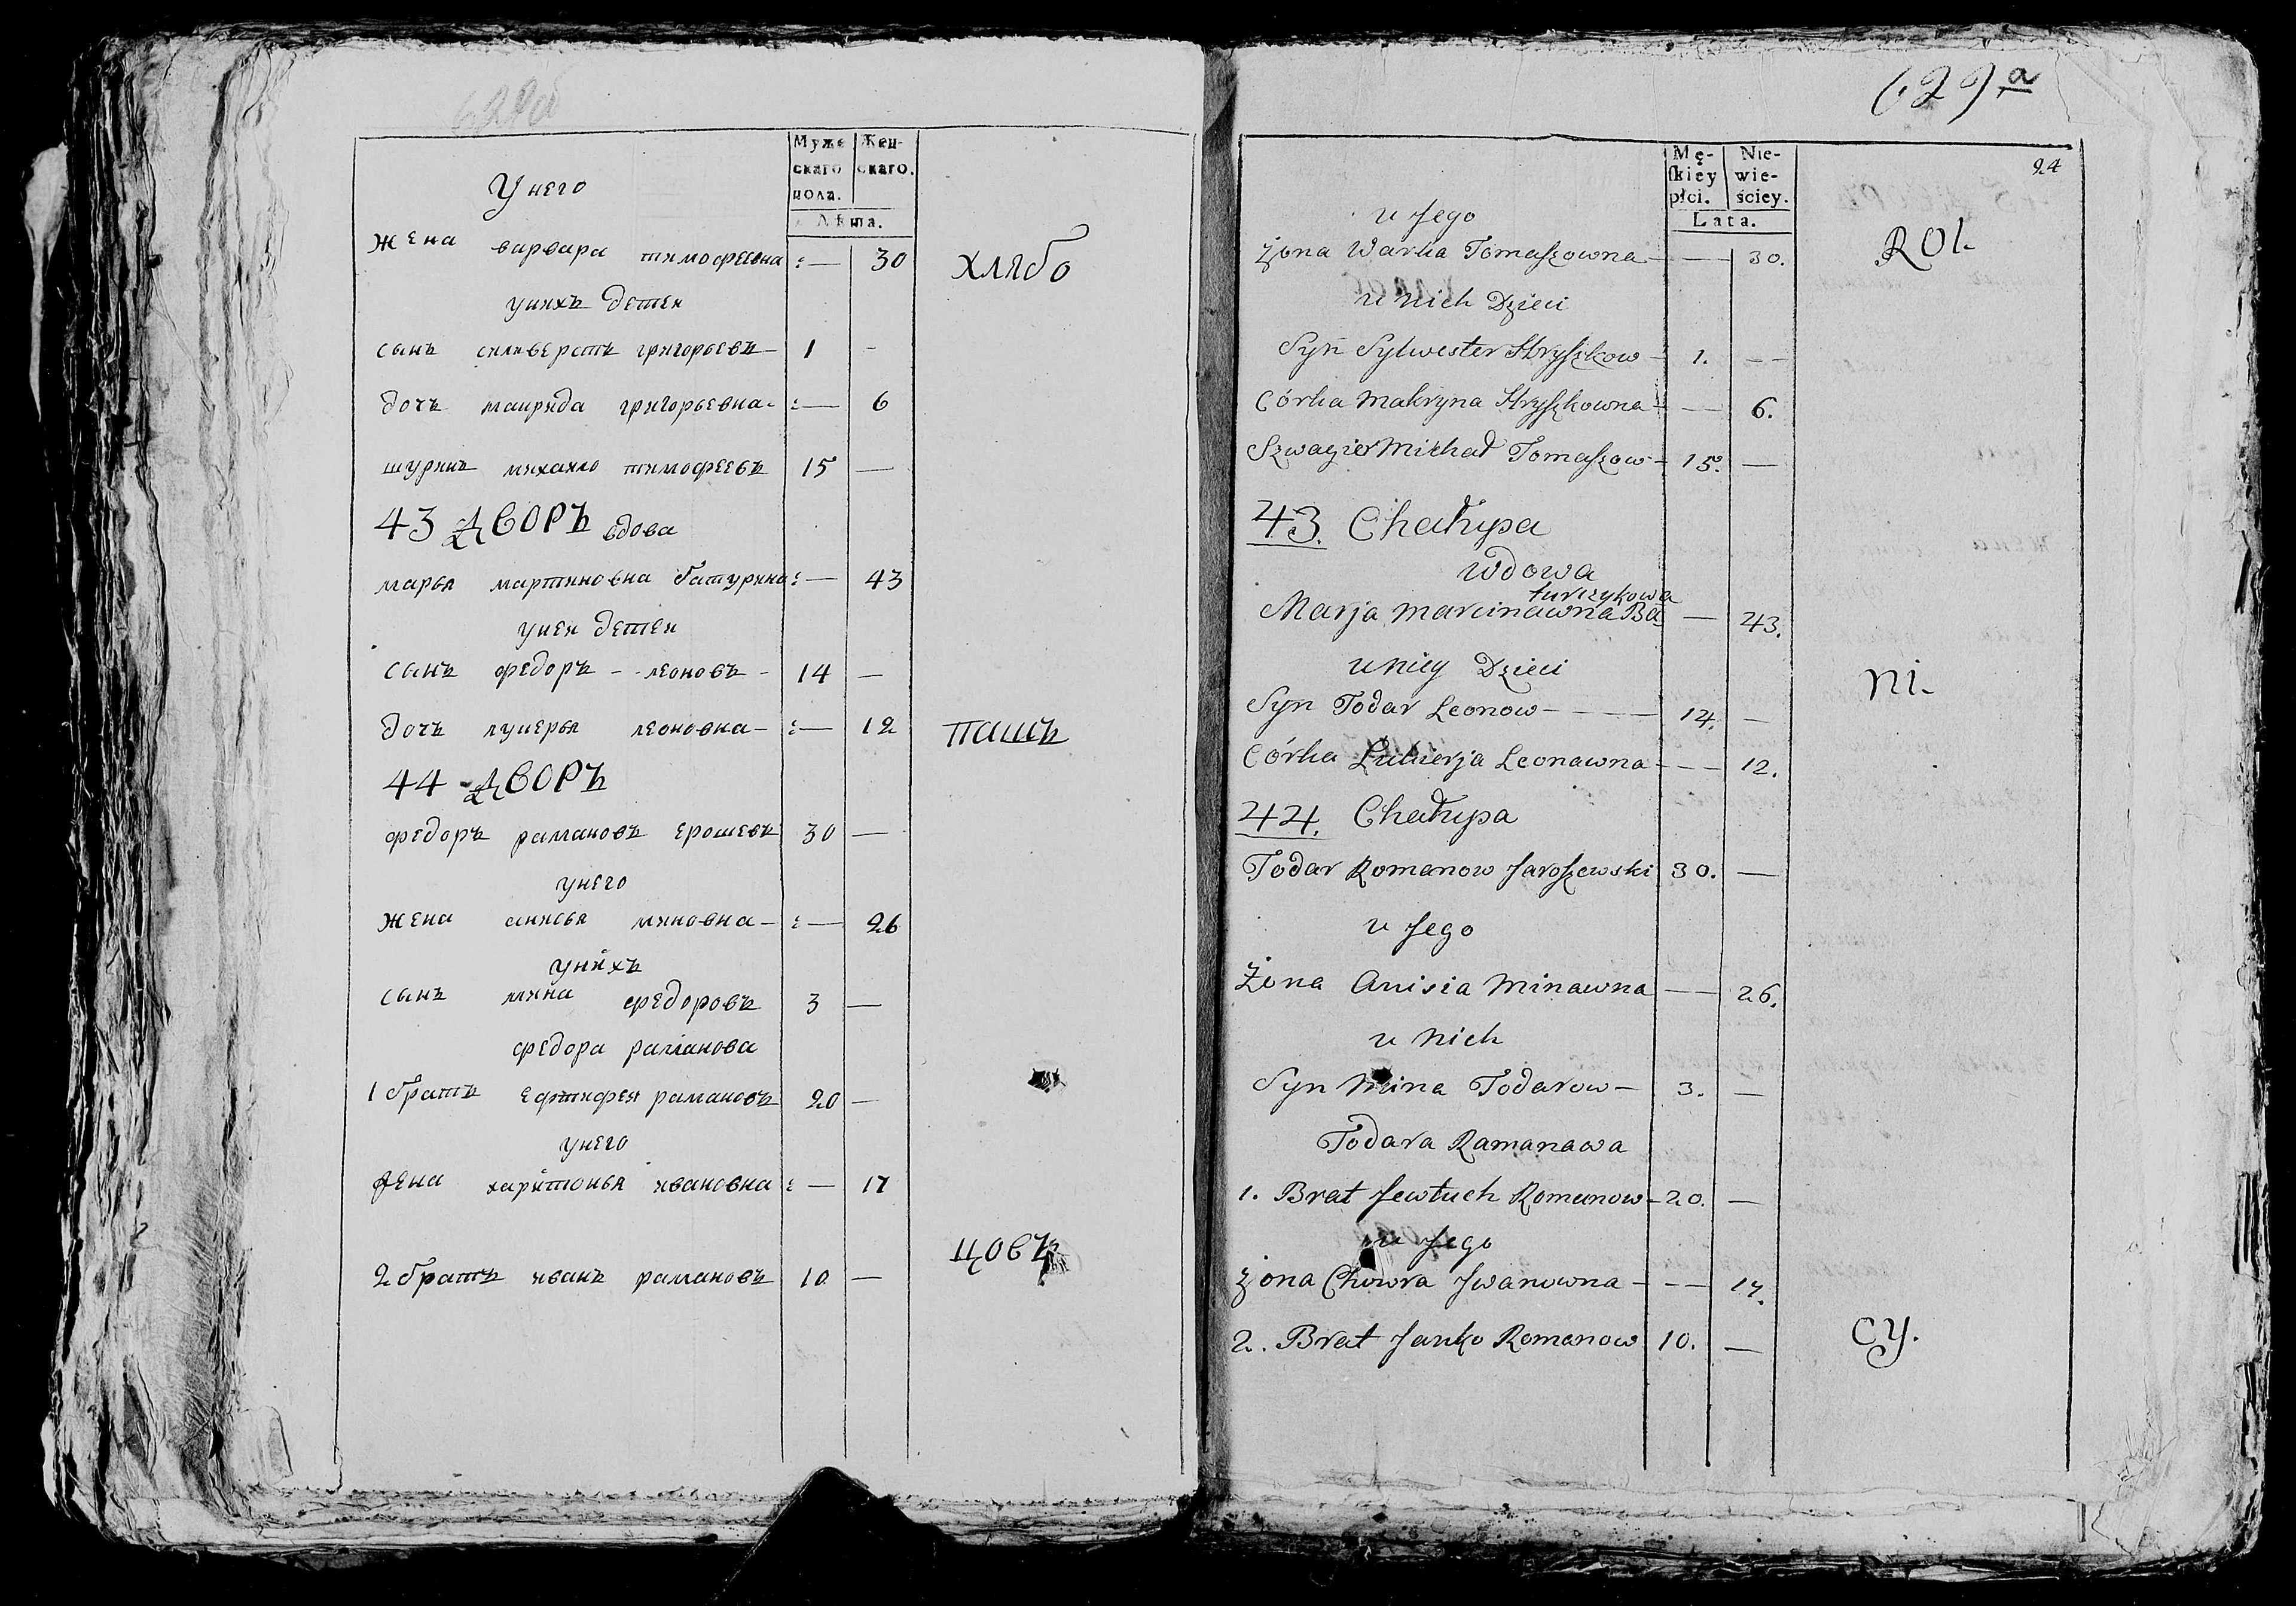 Муже
скаго
пола.
Жен-
скаго.
Лѣта.
Унего
жена варвара тимофеевна :— 30
хлѣбо
унихъ детей
сынъ силиверстъ григорьевъ — 1 -
дочь макрида григорьевна :— 6
шуринъ михайло тимофеевъ 15 —
43 ДВОРЪ вдова
марья мартиновна батурина :— 43
уней детей
сынъ федоръ -- леоновъ - 14 —
дочь лукерья леоновна — :— 12
пашъ
44 ДВОРЪ
федоръ рамановъ ерошевъ 30 —
унего
жена анисья миновна — :— 26
унихъ
сынъ мина федоровъ 3 —
федора раманова
1 братъ ефтифей рамановъ 20 —
унего
жена харитонья ивановна :— 17
цовъ
2 братъ иванъ рамановъ 10 —
629 a
24
Mę-
skiey
płci.
Nie-
wie-
ściey.
Lata.
u Jego
Żona Warka Tomaszowna — — 30.
Rol-
u nich Dzieci
Syn Sylwester Hryszkow — 1. — —
Córka Makryna Hryszkowna — — 6.
Szwagier Michał Tomaszow — 15. —
43. Chałupa
wdowa
turczykowa
Marja Marcinawna Ba — 43.
u niey Dzieci
ni-
Syn Todar Leonow — 14. —
Córka Łukierja Leonawna — — 12.
44. Chałupa
Todar Romanow Jaroszewski 30. —
u Jego
Żona Anisia Minawna — — 26.
u Nich
Syn Mina Todarow — 3. —
Todara Ramanawa
1. Brat Jewtuch Romanow — 20. —
u Jego
Żona Chowra Jwanowna — — 17.
2. Brat Janko Romanow 10. —
cy.